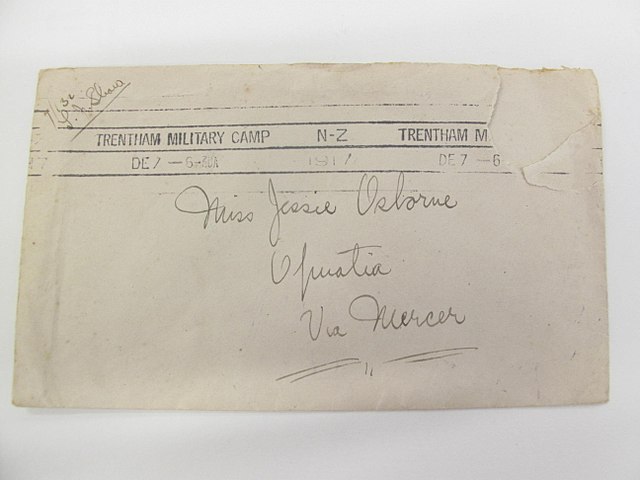 TRENTHAM MILITARY CAMP N-Z TRENTHAM M
DE 7 — 6-30A 1917 DE 7 — 6
Miss Jessie Osborne
Opuatia
Via Mercer